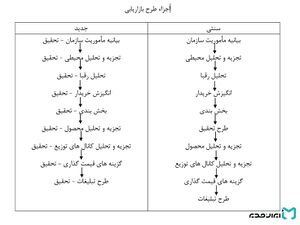 اجزاء طرح بازاریابی
سنتی
بیانیه مأموریت سازمان
تجزیه و تحلیل محیطی
تحلیل رقبا
انگیزش خریدار
بخش بندی
طرح تحقیق
تجزیه و تحلیل محصول
تجزیه و تحلیل کانال های توزیع
گزینه های قیمت گذاری
طرح تبلیغات
جدید
بیانیه مأموریت سازمان - تحقیق
تجزیه و تحلیل محیطی - تحقیق
تحلیل رقبا - تحقیق
انگیزش خریدار - تحقیق
بخش بندی - تحقیق
تجزیه و تحلیل محصول - تحقیق
تجزیه و تحلیل کانال های توزیع - تحقیق
گزینه های قیمت گذاری - تحقیق
طرح تبلیغات - تحقیق